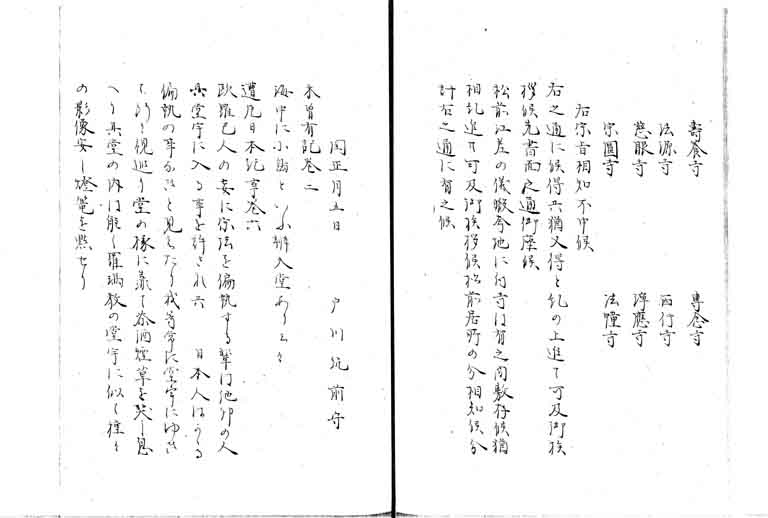 壽養寺　　　專念寺
法源寺　　　西行寺
慈眼寺　　　淨應寺
宗圓寺　　　法幢寺
右宗旨相知不申候
右之通に候得共猶又得と糺の上追て可及御挨
拶候先書面之通御座候
松前江差の儀蝦夷地に付寺は有之間敷存候猶
相糺追て可及御挨拶候松前居所の分相知候分
計右之通に有之候
同正月五日　　戸川筑前守
未曾有記卷二
海中に小島といふ辨天堂あり云々
遭厄日本記事卷六
歐羅巴人の妄に宗法を偏執する輩門他邦の人
其堂宇に入る事を許されん　日本人はかゝる
偏執の事なきと見えたり我等常に堂宇にゆき
て堂の椽に茶酒煙草を喫し息
へり其堂の内は能く羅瑪敎の堂宇に似て種々
の影像安し燈籠を點せり